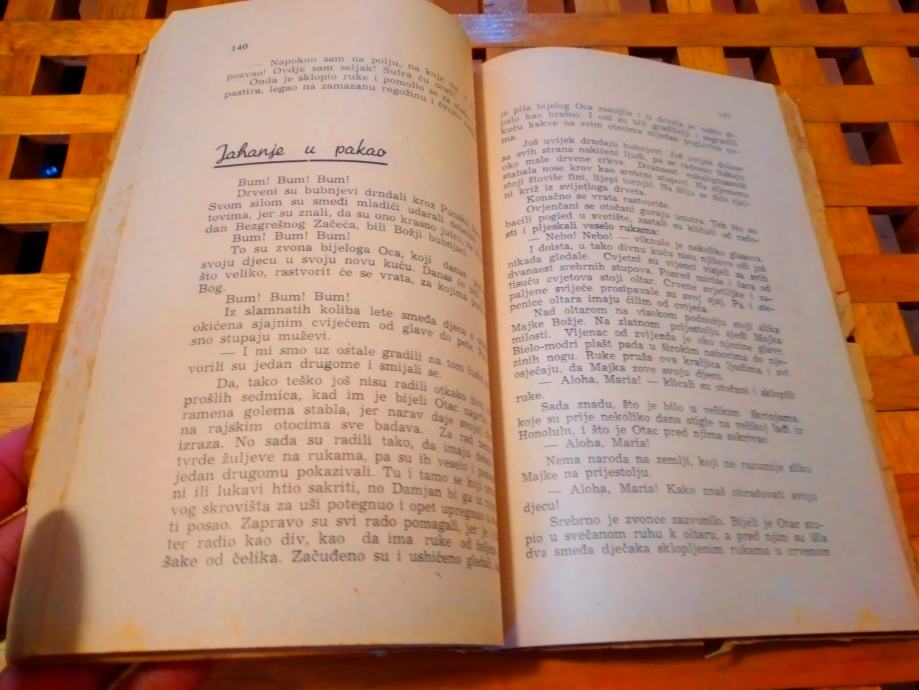 140
— Napokon sam na polju, na koje me je
pozvao! Ovdje sam seljak! Sutra ću orati!
Onda je sklopio ruke i pomolio se za
pastira, legao na zamazanu rogožinu i čvrsto
Jahanje u pakao
Bum! Bum! Bum!
Drveni su bubnjevi drndali kroz
Svom silom su smeđi mladići udarali
tovima, jer su znali, da su ono krasno jutro, na
dan Bezgrešnog Začeća, bili Božji bubnjari.
Bum! Bum! Bum!
To su zvona bijeloga Oca, koji danas
svoju djecu u svoju novu kuću. Danas će
što veliko, rastvorit će se vrata, za kojima
Bog.
Bum! Bum! Bum!
Iz slamnatih koliba lete smeđa djeca
okićena sjajnim cvijećem od glave do pete.
sno stupaju muževi.
— I mi smo uz ostale gradili na tom
vorili su jedan drugome i smijali se.
Da, tako teško još nisu radili otkako
prošlih sedmica, kad im je bijeli Otac
ramena golema stabla, jer narav daje
na rajskim otocima sve badava. Za rad
izraza. No sada su radili tako, da imaju
tvrde žuljeve na rukama, pa su ih veselo i
jedan drugomu pokazivali. Tu i tamo se koji
ni ili lukavi htio sakriti, no Damjan bi ga iz
vog skrovišta za uši potegnuo i opet upregnuo u
ti posao. Zapravo su svi rado pomagali, jer je i
ter radio kao div, kao da ima ruke od željeza
šake od čelika. Začuđeno su i ushićeno gledali
je pila bijelog Oca zazujila i u drveta se nešto
palo kao brašno. I oni su bili graditelji i sagradili
kuću kakve na svim otocima nijedan poglavica
ma.
Još uvijek drndaju bubnjevi. Još uvijek dolaze
sa svih strana nakićeni ljudi, pa se radosno tiskaju
oko male drvene crkve. Dvanaest eukaliptusovih
stabala nose krov kao srebrni stupovi. Na
stoji štoviše fini, lijepi tornjić. Na njemu se diže
ni križ iz svijetloga drveta.
Konačno se vrata rastvoriše.
Ovjenčani se otočani guraju unutra. Tek što su
bacili pogled u svetište, zastali su kličući od rado-
sti i pljeskali veselo rukama:
— Nebo! Nebo! — viknulo je nekoliko glasova.
I doista, u tako divnu kuću nisu njihove oči još
nikada gledale. Cvjetni su vijenci visjeli sa svih
dvanaest srebrnih stupova. Posred mirisa i čara od
tisuću cvjetova stoji oltar. Crvene svjetiljke i za-
paljene svijeće prosipavale su svoj sjaj. Pa i ste-
penice oltara imaju ćilim od cvijeća.
Nad oltarom na visokom području stoji slika
Majke Božje. Na zlatnom prijestolju sjedi Majka
milosti. Vijenac od zvijezda je oko njezine glave.
Bielo-modri plašt pada u širokim naborima do nje-
zinih nogu. Ruke pruža ova kraljica ljudima i svi
osjećaju, da Majka zove svoju djecu.
— Aloha, Maria! — klicali su otočani i sklopili
ruke.
Sada znadu, što je bilo u velikim škrinjama,
koje su prije nekoliko dana stigle na velikoj lađi iz
Honolulu, i što je Otac pred njima sakrivao.
— Aloha, Maria!
Nema naroda na zemlji, koji ne razumije sliku
Majke na prijestolju.
— Aloha, Maria! Kako znaš obradovati svoju
djecu!
Srebrno je zvonce zazvonilo. Bijeli je Otac stu-
pio u svečanom ruhu k oltaru, a pred njim su išla
dva smeđa dječaka sklopljenim rukama u crvenom